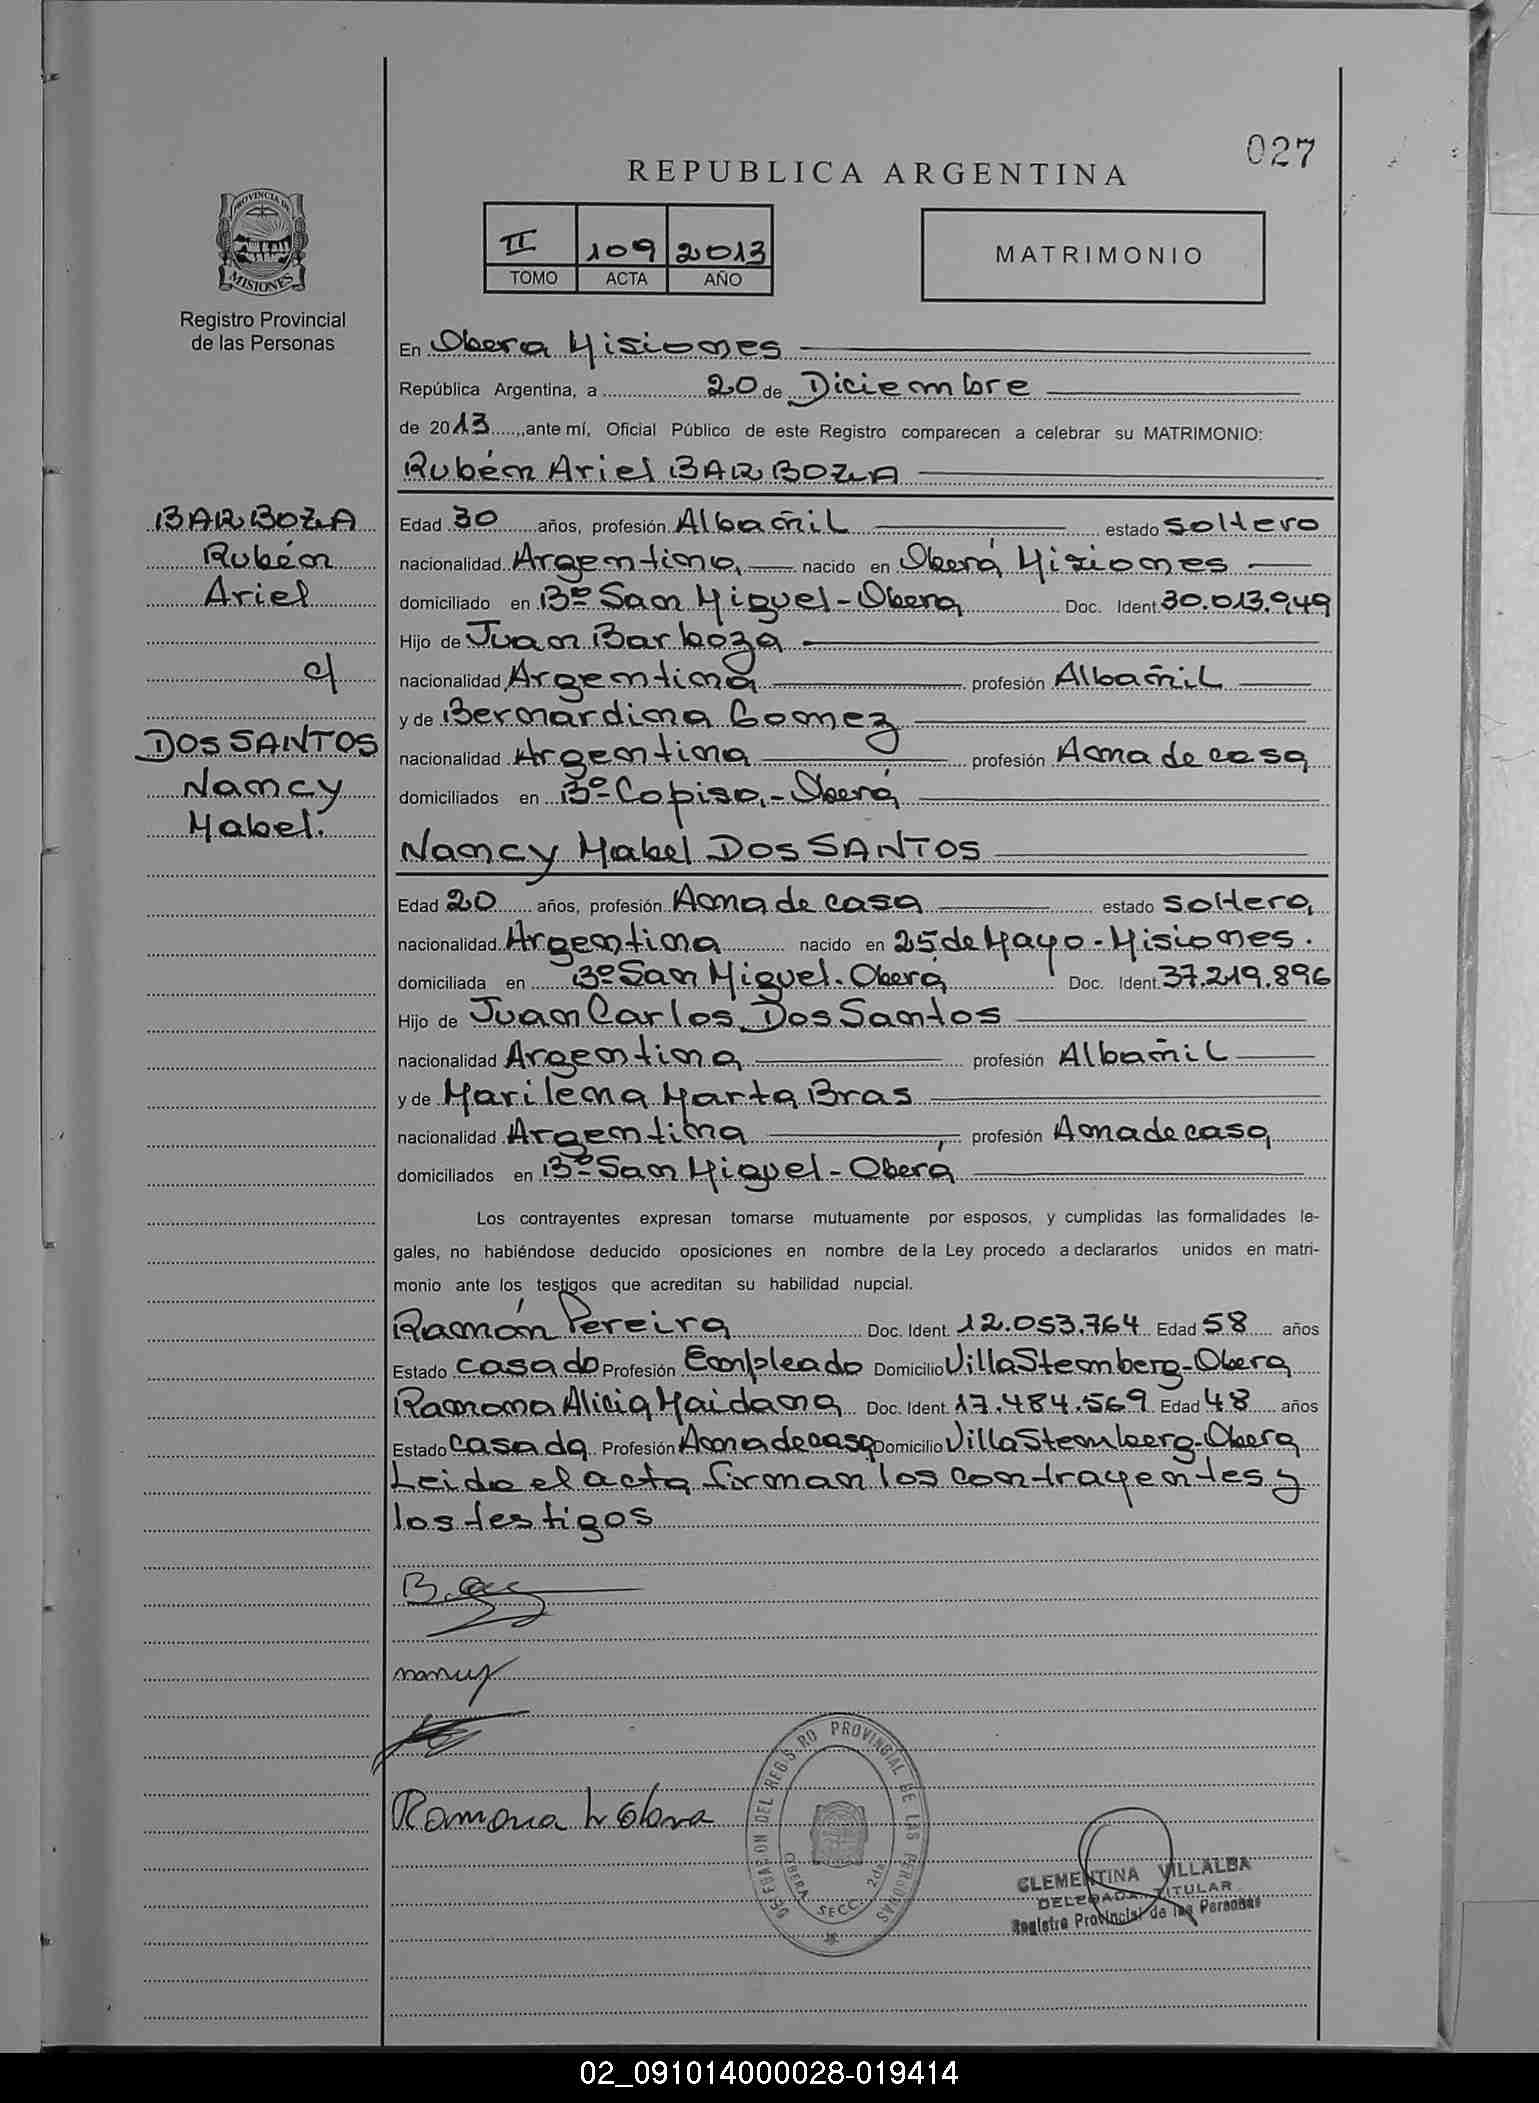 027
REPUBLICA ARGENTINA
PROVINCIA DE
MISIONES
Registro Provincial
de las Personas
II 109 2013
TOMO ACTA AÑO
MATRIMONIO
En Obera Misiones
República Argentina, a 20 de Diciembre
de 2013, ante mí, Oficial Público de este Registro comparecen a celebrar su MATRIMONIO:
Rubén Ariel BARBOZA
BARBOZA
Rubén
Ariel
c/
DOS SANTOS
Nancy
Mabel.
Edad 30 años, profesión Albañil estado soltero
nacionalidad Argentina nacido en Oberá Misiones
domiciliado en Bº San Miguel - Obera Doc. Ident. 30.013.949
Hijo de Juan Barboza
nacionalidad Argentina profesión Albañil
y de Bernardina Gomez
nacionalidad Argentina profesión Ama de casa
domiciliados en Bº Copisa - Oberá
Nancy Mabel DOS SANTOS
Edad 20 años, profesión Ama de casa estado soltera
nacionalidad Argentina nacido en 25 de Mayo - Misiones.
domiciliada en Bº San Miguel - Oberá Doc. Ident. 37.219.896
Hijo de Juan Carlos Dos Santos
nacionalidad Argentina profesión Albañil
y de Marilena Marta Bras
nacionalidad Argentina profesión Ama de casa
domiciliados en Bº San Miguel - Oberá
Los contrayentes expresan tomarse mutuamente por esposos, y cumplidas las formalidades le-
gales, no habiéndose deducido oposiciones en nombre de la Ley procedo a declararlos unidos en matri-
monio ante los testigos que acreditan su habilidad nupcial.
Ramón Pereira Doc. Ident. 12.053.764 Edad 58 años
Estado casado Profesión Empleado Domicilio Villa Stemberg - Obera
Ramona Alicia Maidana Doc. Ident. 17.484.569 Edad 48 años
Estado casada Profesión Ama de casa Domicilio Villa Stemberg - Obera
Leido el acta firman los contrayentes y
los testigos
nancy
Ramona
DELEGACION DEL REGISTRO PROVINCIAL DE LAS PERSONAS
OBERA SECC. 2da
CLEMENTINA VILLALBA
DELEGADA TITULAR
Registro Provincial de las Personas
02_091014000028-019414